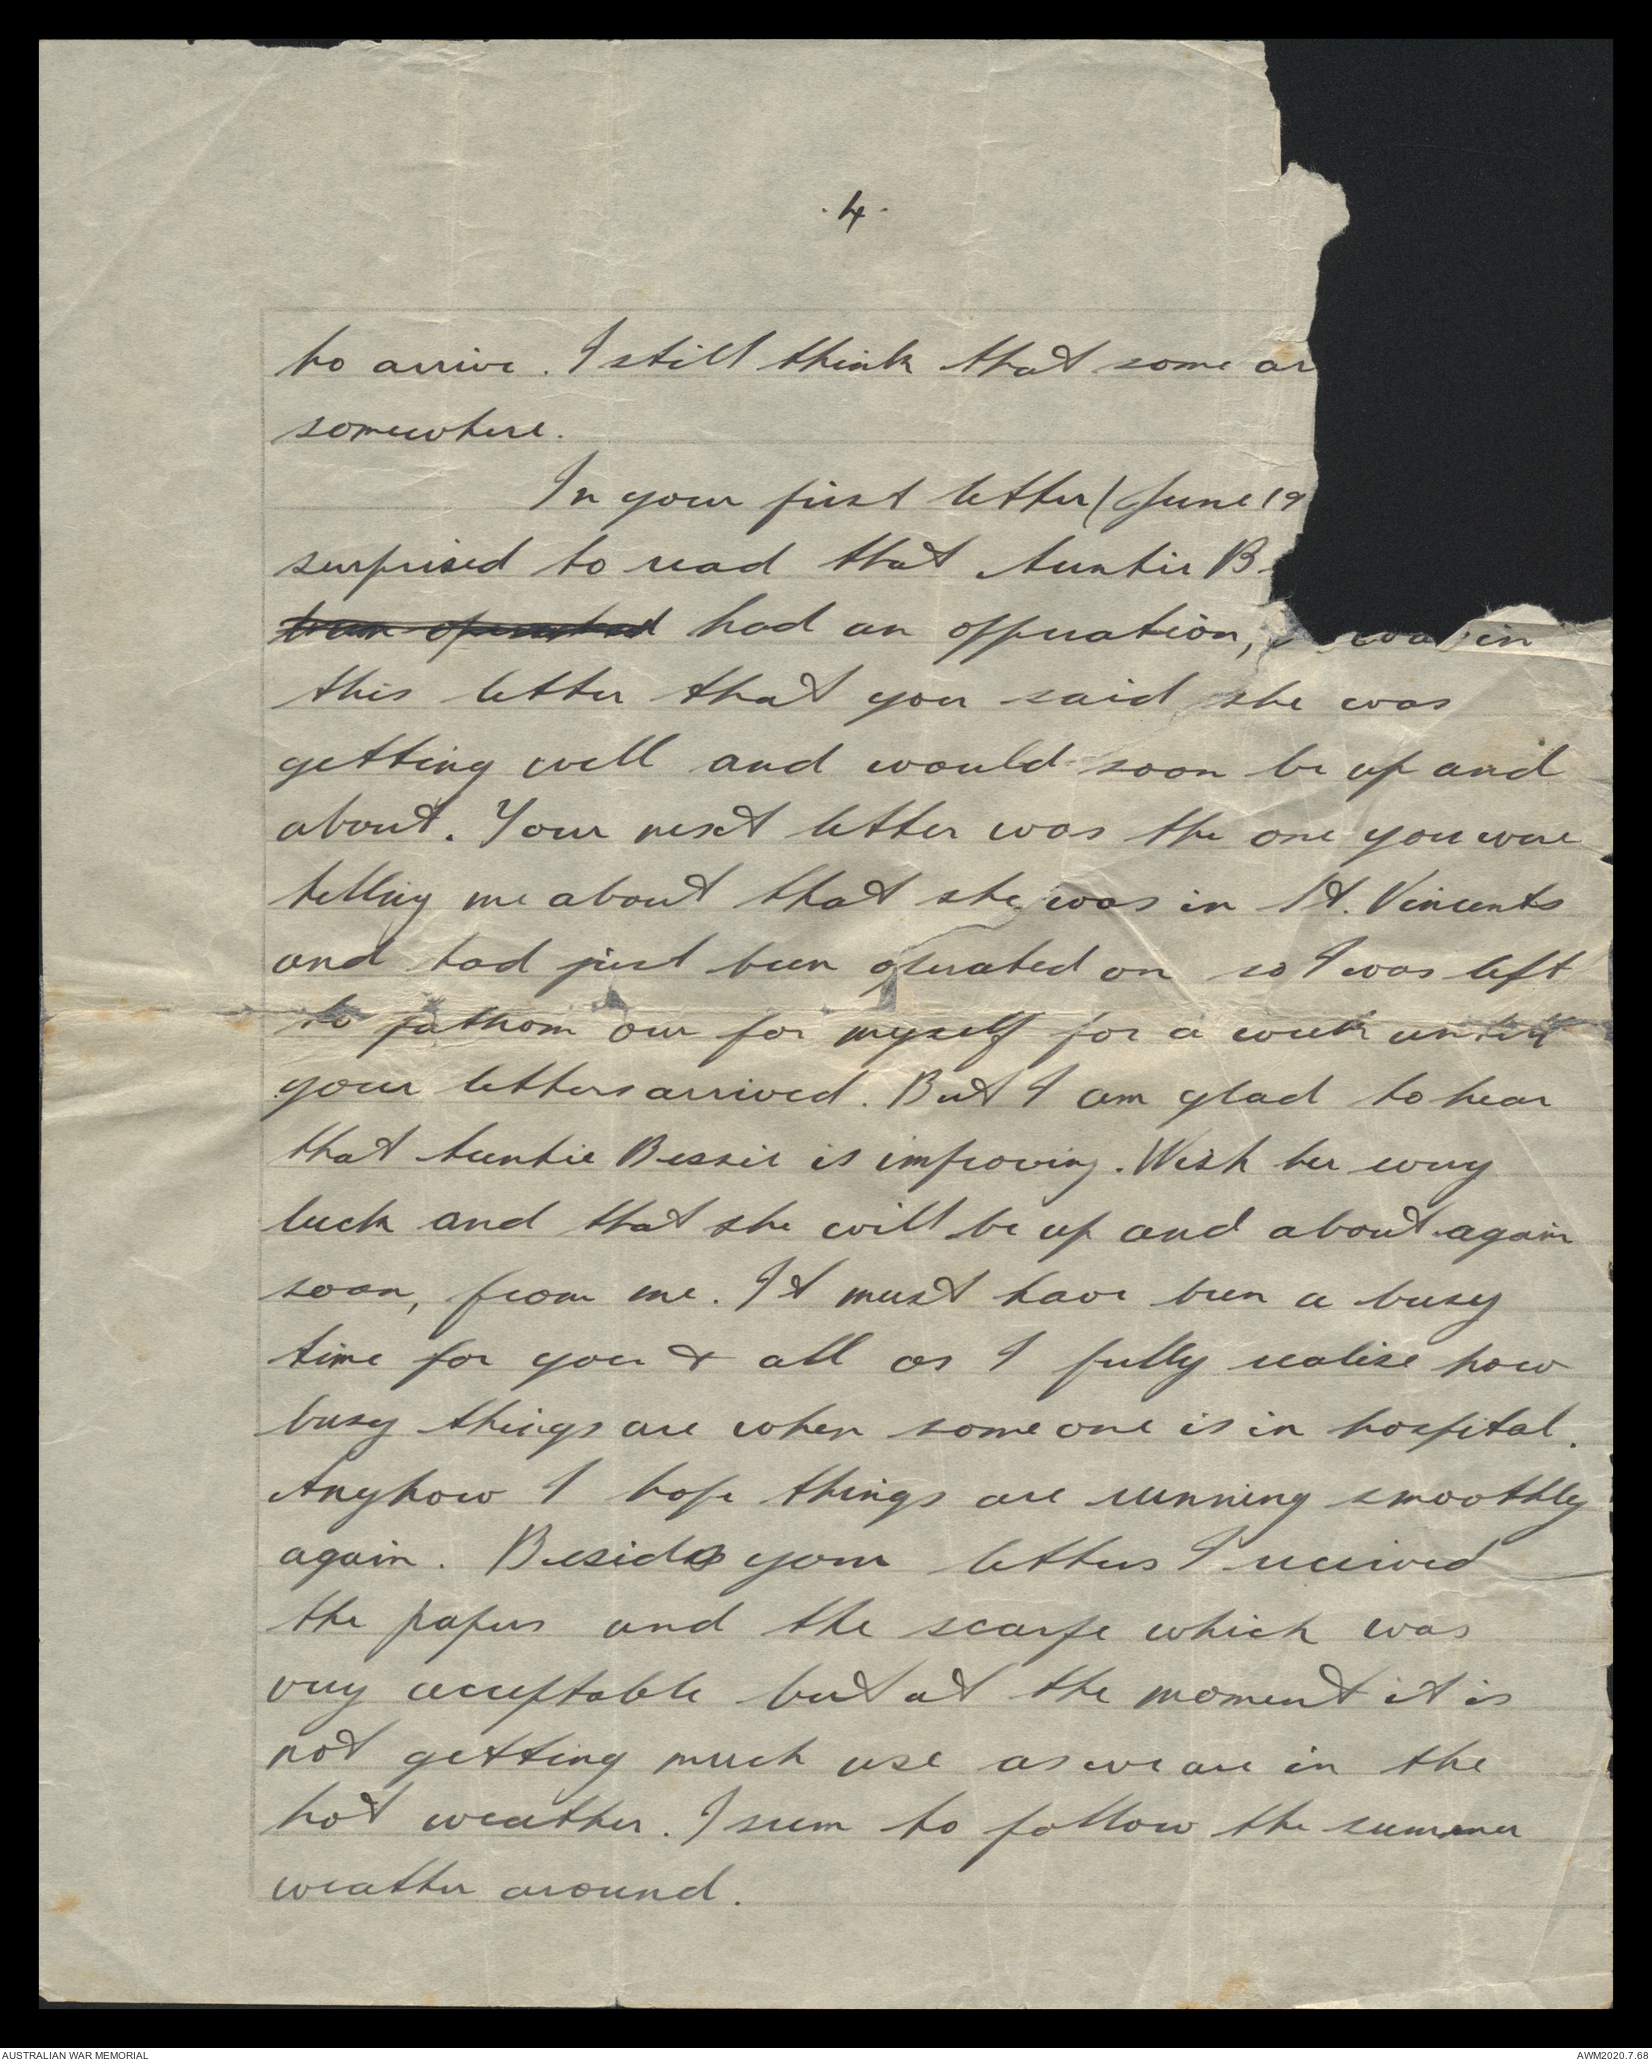 .4.
to arrive. I still think that some ar
somewhere.
In your first letter (June 19
surprised to read that Auntie B
been operated had an opperation, was in
this letter that you said she was
getting well and would soon be up and
about. Your next letter was the one you were
telling me about that she was in St. Vincents
and had just been operated on so I was left
to fathom our for myself for a week until
your letters arrived. But I am glad to hear
that Auntie Bessie is improving. Wish her every
luck and that she will be up and about again
soon, from me. It must have been a busy
time for you & all as I fully realise how
busy things are when some one is in hospital.
Anyhow I hope things are running smoothly
again. Besides your letters I received
the papers and the scarfe which was
very acceptable but at the moment it is
not getting much use as we are in the
hot weather. I seem to follow the summer
weather around.
AUSTRALIAN WAR MEMORIAL
AWM2020.7.68